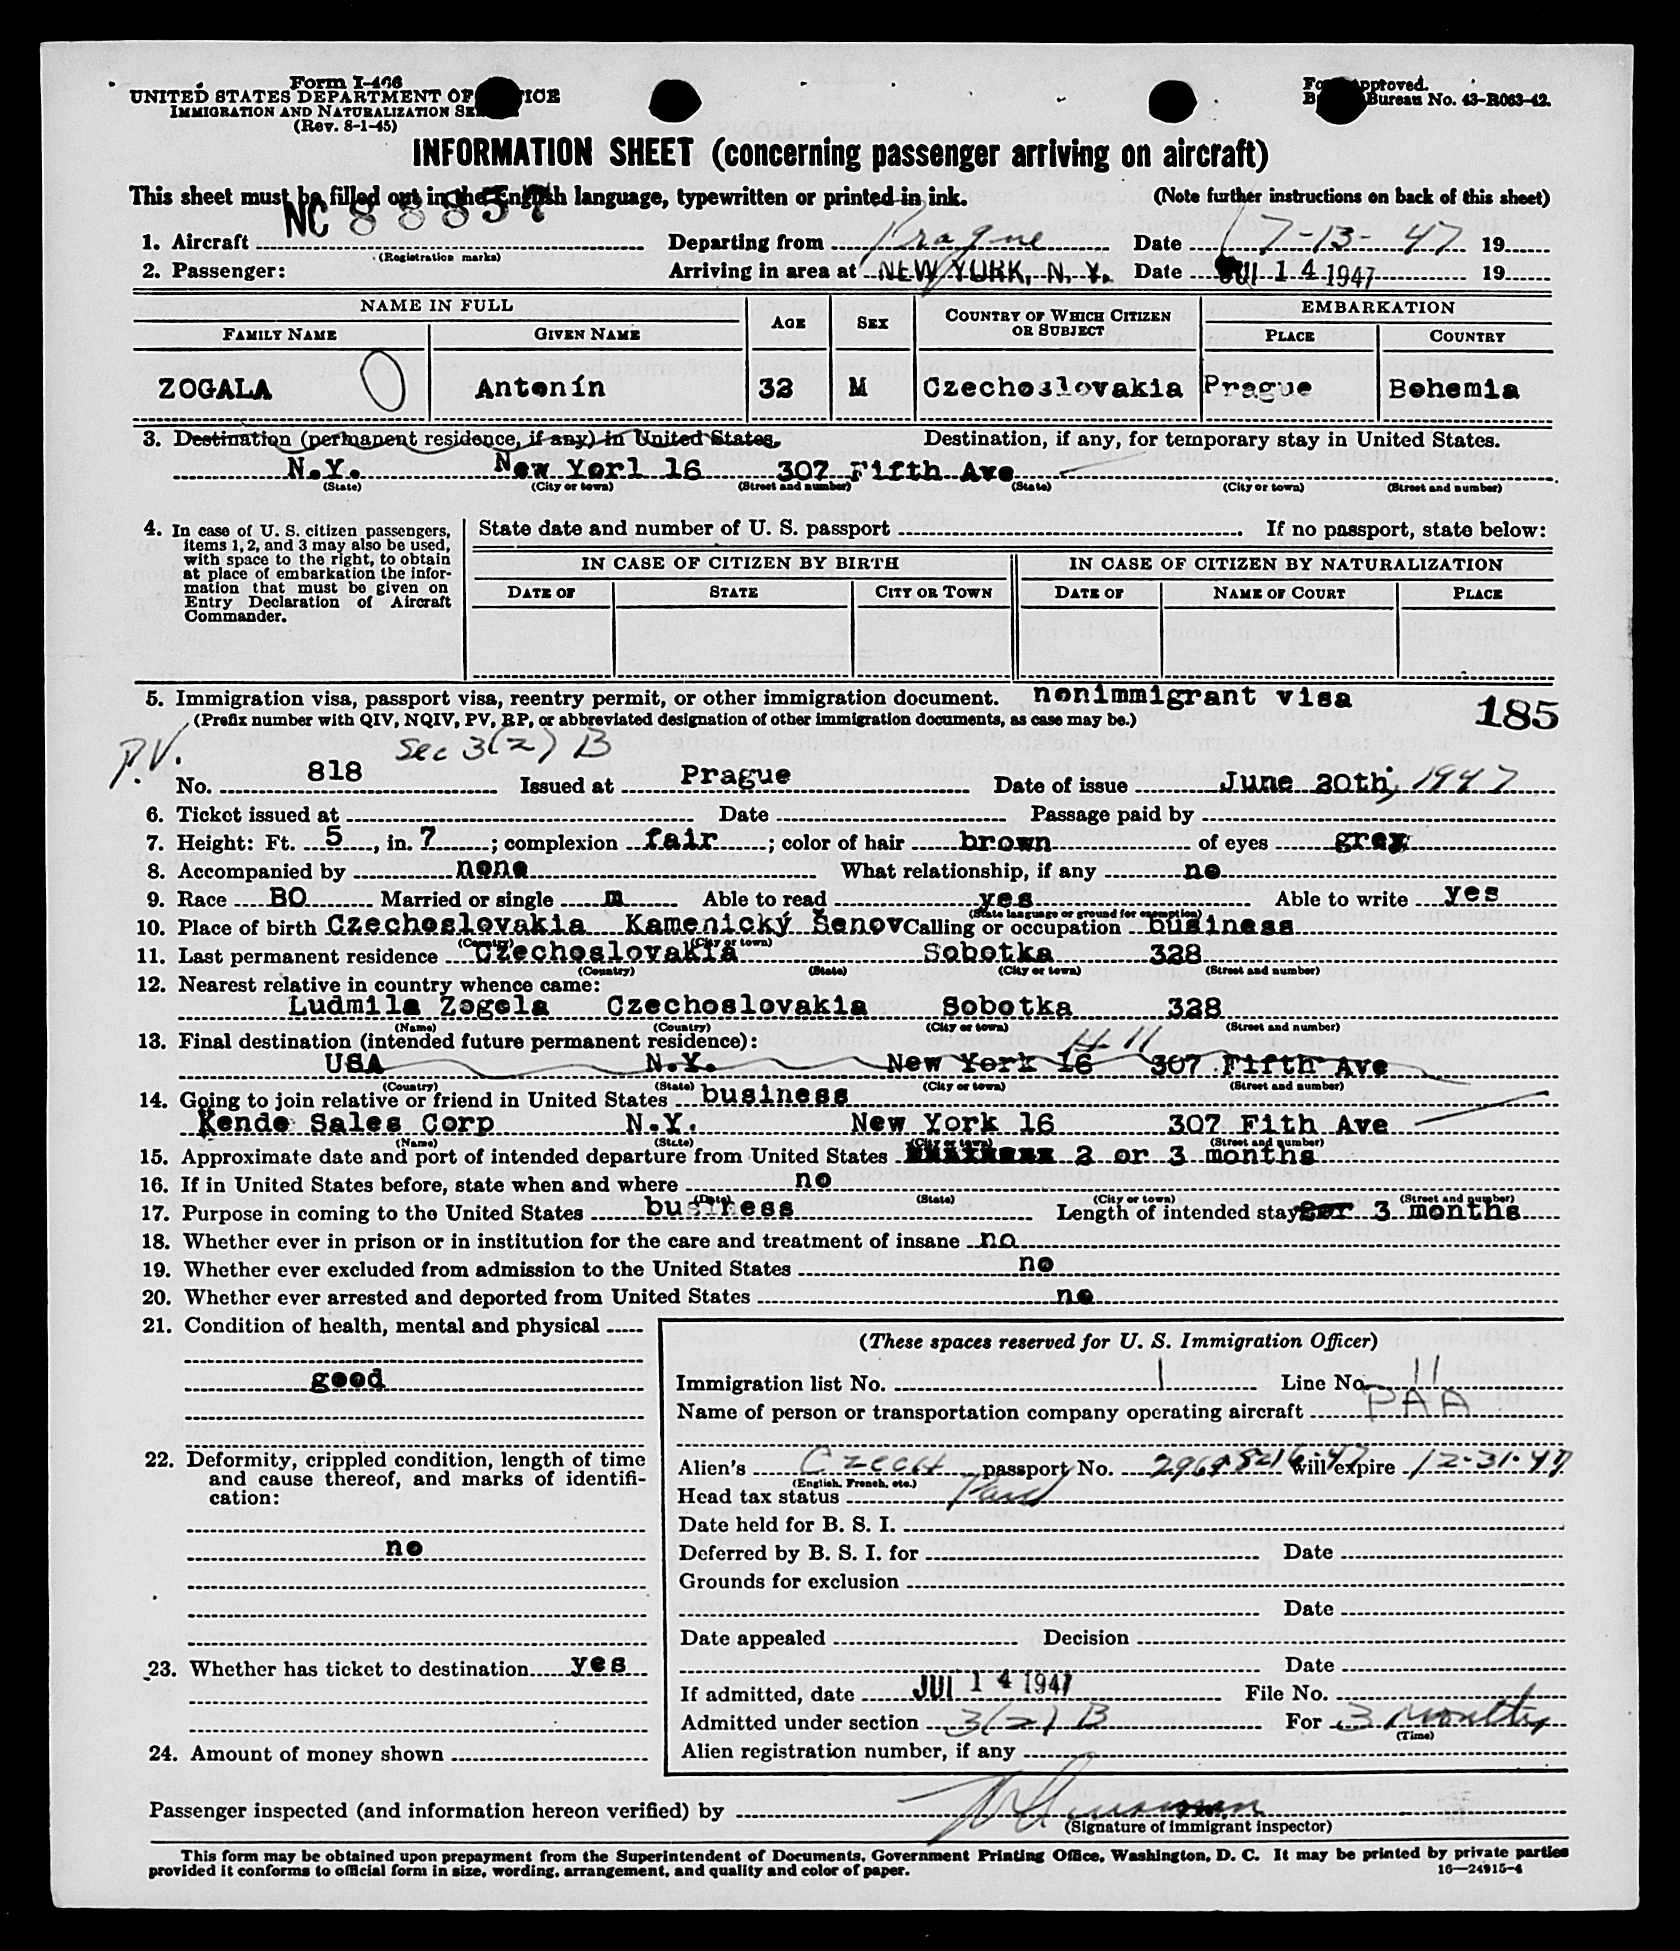 Form I-466
UNITED STATES DEPARTMENT OF
IMMIGRATION AND NATURALIZATION
(Rev. 8-1-45)
pproved.
Bureau No. 43-R063-42.
INFORMATION SHEET (concerning passenger arriving on aircraft)
This sheet must be filled out in the English language, typewritten or printed in ink. (Note further instructions on back of this sheet)
NC 88857
1. Aircraft Departing from Prague Date 7-13-47 19
(Registration marks)
2. Passenger: Arriving in area at NEW YORK, N. Y. Date JUL 14 1947 19
NAME IN FULL AGE SEX COUNTRY OF WHICH CITIZEN OR SUBJECT EMBARKATION
FAMILY NAME GIVEN NAME PLACE COUNTRY
ZOGALA Antonín 32 M Czechoslovakia Prague Bohemia
3. Destination (permanent residence, if any) in United States. Destination, if any, for temporary stay in United States.
N.Y. New Yorl 16 307 Fifth Ave
(State) (City or town) (Street and number) (State) (City or town) (Street and number)
4. In case of U. S. citizen passengers, items 1, 2, and 3 may also be used, with space to the right, to obtain at place of embarkation the information that must be given on Entry Declaration of Aircraft Commander.
State date and number of U. S. passport If no passport, state below:
IN CASE OF CITIZEN BY BIRTH IN CASE OF CITIZEN BY NATURALIZATION
DATE OF STATE CITY OR TOWN DATE OF NAME OF COURT PLACE
5. Immigration visa, passport visa, reentry permit, or other immigration document. nonimmigrant visa
(Prefix number with QIV, NQIV, PV, RP, or abbreviated designation of other immigration documents, as case may be.) 185
P.V. Sec 3(2) B
No. 818 Issued at Prague Date of issue June 20th, 1947
6. Ticket issued at Date Passage paid by
7. Height: Ft. 5, in. 7; complexion fair; color of hair brown of eyes grey
8. Accompanied by none What relationship, if any no
9. Race BO Married or single m Able to read yes Able to write yes
(State language or ground for exemption)
10. Place of birth Czechoslovakia Kamenický Šenov Calling or occupation business
(Country) (City or town)
11. Last permanent residence Czechoslovakia Sobotka 328
(Country) (State) (City or town) (Street and number)
12. Nearest relative in country whence came:
Ludmila Zogela Czechoslovakia Sobotka 328
(Name) (Country) (City or town) (Street and number)
13. Final destination (intended future permanent residence):
USA N.Y. New York 16 307 Fifth Ave
(Country) (State) (City or town) (Street and number)
14. Going to join relative or friend in United States business
Kende Sales Corp N.Y. New York 16 307 Fith Ave
(Name) (State) (City or town) (Street and number)
15. Approximate date and port of intended departure from United States 2 or 3 months
16. If in United States before, state when and where no
(Date) (State) (City or town) (Street and number)
17. Purpose in coming to the United States business Length of intended stay 3 months
18. Whether ever in prison or in institution for the care and treatment of insane no
19. Whether ever excluded from admission to the United States no
20. Whether ever arrested and deported from United States no
21. Condition of health, mental and physical
good
22. Deformity, crippled condition, length of time and cause thereof, and marks of identification:
no
23. Whether has ticket to destination yes
24. Amount of money shown
(These spaces reserved for U. S. Immigration Officer)
Immigration list No. 1 Line No. 11
Name of person or transportation company operating aircraft PAA
Alien's Czech passport No. will expire 12-31-47
(English, French, etc.)
Head tax status Paid
Date held for B. S. I.
Deferred by B. S. I. for Date
Grounds for exclusion
Date
Date appealed Decision
Date
If admitted, date JUL 14 1947 File No.
Admitted under section 3(2) B For 3 months
(Time)
Alien registration number, if any
Passenger inspected (and information hereon verified) by
(Signature of immigrant inspector)
This form may be obtained upon prepayment from the Superintendent of Documents, Government Printing Office, Washington, D. C. It may be printed by private parties
provided it conforms to official form in size, wording, arrangement, and quality and color of paper. 16—24915-4